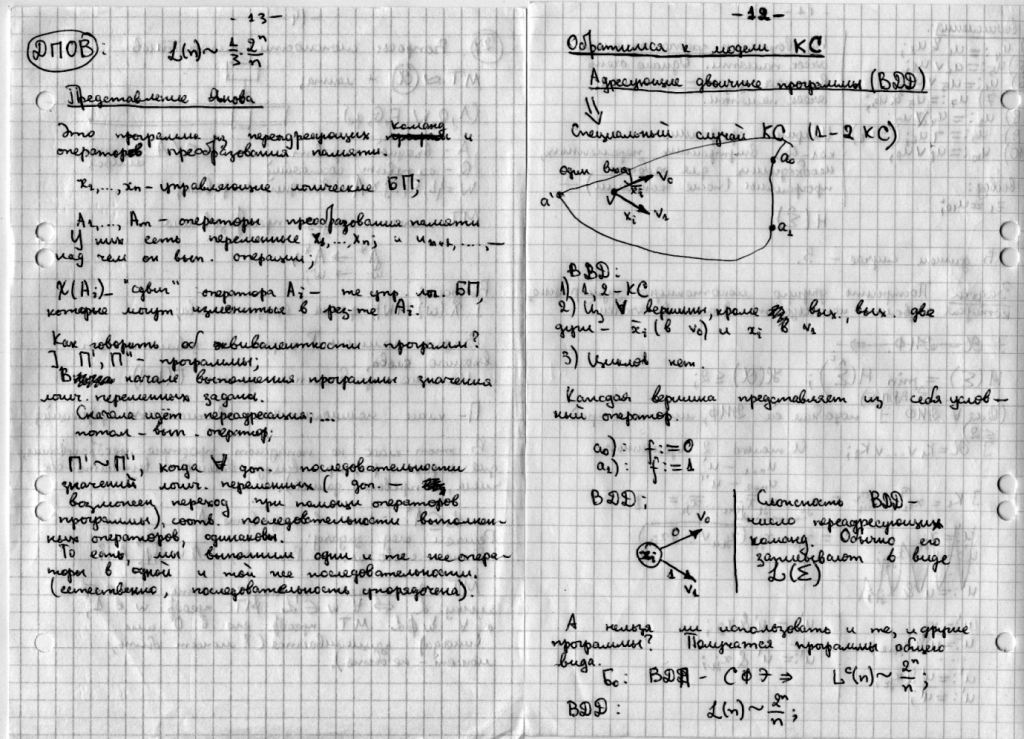 - 13 -
ДПОВ: L(n) ~ 1/3 · 2ⁿ/n
Представление Янова
Это программы из переадресующих команд и
операторов преобразования памяти.
x₁,..., xn - управляющие логические БП;
A₁,..., Am - операторы преобразования памяти
У них есть переменные x₁,...,xn; и un+1, ...., -
над чем он вып. операции;
X(Ai) - "сдвиг" оператора Ai - те упр. лог. БП,
которые могут измениться в рез-те Ai.
Как говорить об эквивалентности программ?
] П', П'' - программы;
В начале выполнения программы значения
логич. переменных заданы.
Сначала идёт переадресация; ...
потом - вып. оператор;
П' ~ П'', когда ∀ доп. последовательности
значений логич. переменных ( доп. -
возможен переход при помощи операторов
программы), соотв. последовательности выполнен-
ных операторов, одинаковы.
То есть, мы выполним одни и те же опера-
торы в одной и той же последовательности.
(естественно, последовательность упорядочена).
- 12 -
Обратимся к модели КС
Адресующие двоичные программы (BDD)
⇓
Специальный случай КС (1-2 КС)
один вход
a
v
x̄i
v₀
xi
v₁
a₀
a₁
BBD:
1) 1,2-КС
2) Из ∀ вершины, кроме вых., вых. две
дуги - x̄i (в v₀) и xi в v₁
3) Циклов нет.
Каждая вершина представляет из себя услов-
ный оператор.
a₀): f:=0
a₁): f:=1
BDD:
xi
0
v₀
1
v₁
Сложность BDD -
число переадресующих
команд. Обычно его
записывают в виде
L(Σ)
А нельзя ли использовать и те, и другие
программы? Получатся программы общего
вида.
Б₀: BDD - СФЭ ⇒ Lᶜ(n) ~ 2ⁿ/n;
BDD: L(n) ~ 2ⁿ/n;